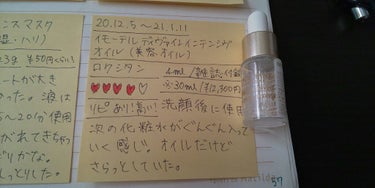 20.12.5〜21.1.11
イモーテル ディヴァインインテンシヴ
オイル(美容オイル)
ロクシタン
4ml/雑誌付録
※30ml/¥12,300円
リピあり!高い!洗顔後に使用
次の化粧水がぐんぐん入って
いく感じ。オイルだけど
さらっとしていた。
ンスマスク
湿・ハリ)
ートが大き
った。液は
〜20分使用
がれてきちゃ
どりかな。
っとりした。
37